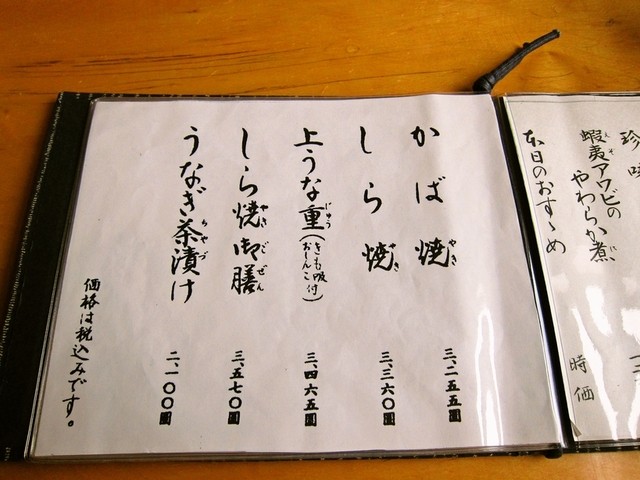 珍味
蝦夷アワビの
えぞ
やわらか煮
に
時価
本日のおすゝめ
かば焼
やき
三、二五五圓
しら焼
やき
三、三六〇圓
上うな重
じゅう
(きも吸付
おしんこ)
三、四六五圓
しら焼御膳
やきごぜん
三、五七〇圓
うなぎ茶漬け
ちゃづ
二、一〇〇圓
価格は税込みです。